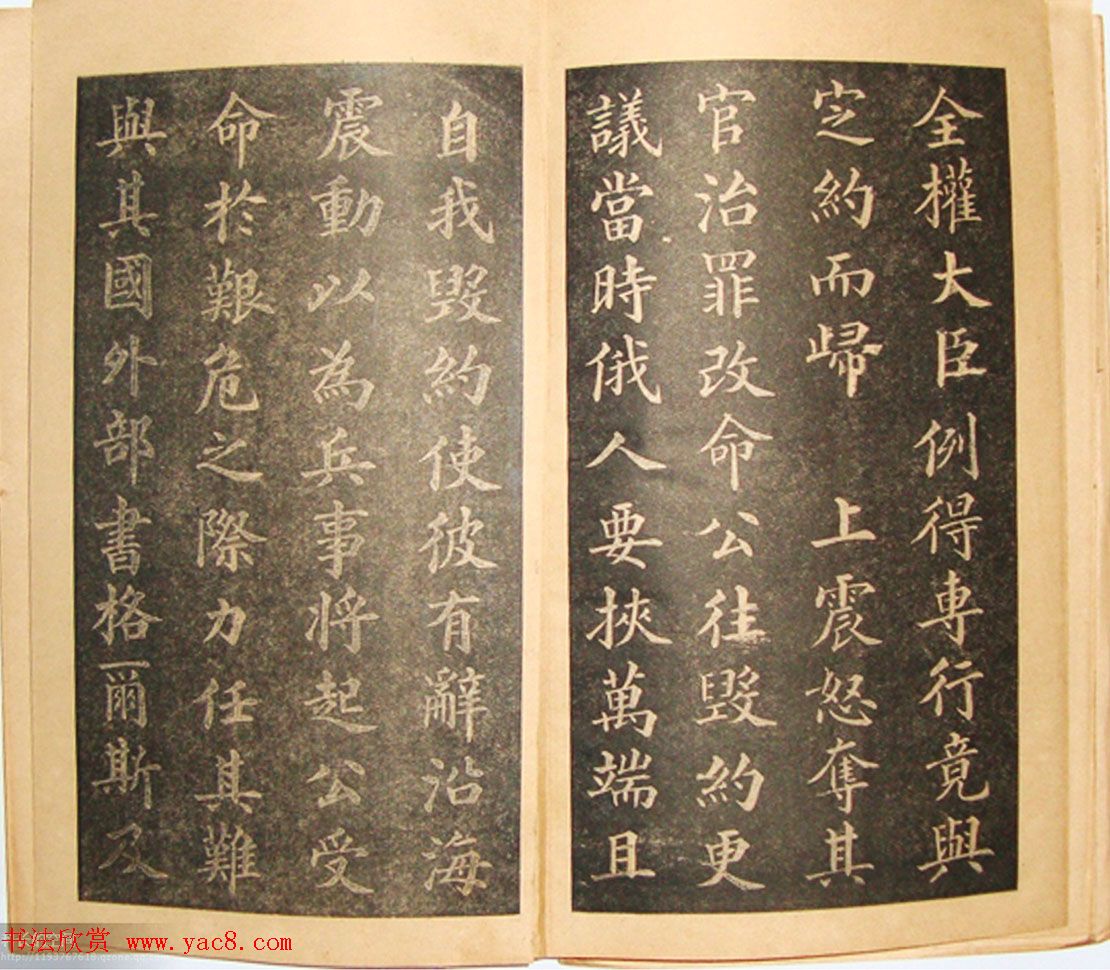 全權大臣例得專行竟與
定約而歸　上震怒奪其
官治罪改命公往毀約更
議當時俄人要挾萬端且
自我毀約使彼有辭沿海
震動以為兵事將起公受
命於艱危之際力任其難
與其國外部書格爾斯及
书法欣赏 www.yac8.com